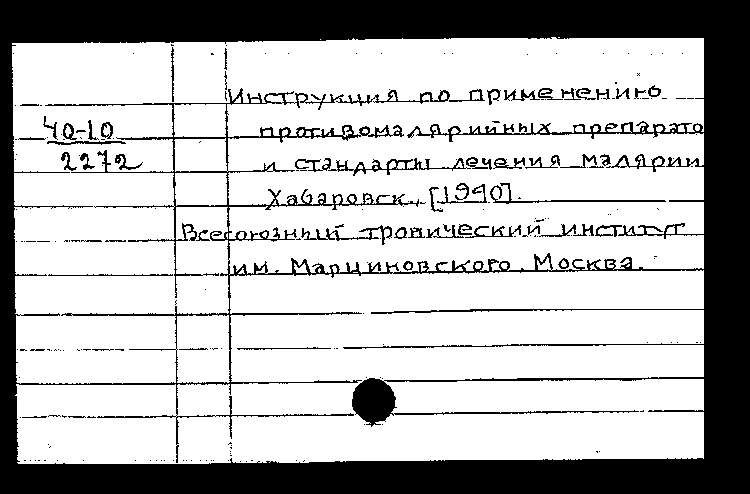 Инструкция по применению
40-10
противомалярийных препарато
2272
и стандарты лечения малярии
Хабаровск, [1940].
Всесоюзный тропический институт
им. Марциновского. Москва.